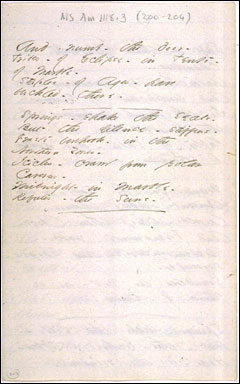 MS Am 1118.3 (200-204)
And - numb - the Door -
Tribes - of Eclipse - in Tents -
of Marble -
Staples - of Ages - have
buckled - there -
Springs - shake the Seals -
But the silence - stiffens -
Frosts unhook - in the
Northern Zones -
Icicles - crawl from polar
Caverns -
Midnight in Marble -
Refutes - the Suns -